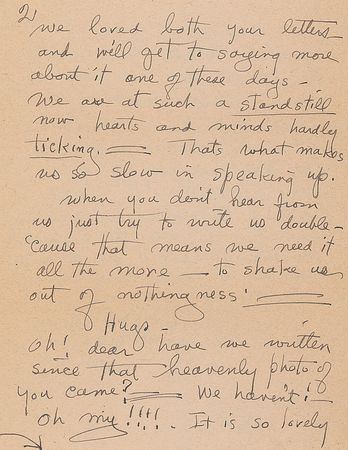 2)
We loved both your letters
and will get to saying more
about it one of these days –
We are at such a standstill
now hearts and minds hardly
ticking. — Thats what makes
us so slow in speaking up.
When you don't hear from
us just try to write us double –
'cause that means we need it
all the more — to shake us
out of nothingness! —
Hugs –
Oh! dear have we written
since that heavenly photo of
you came? — We haven't! –
Oh my!!!! . It is so lovely